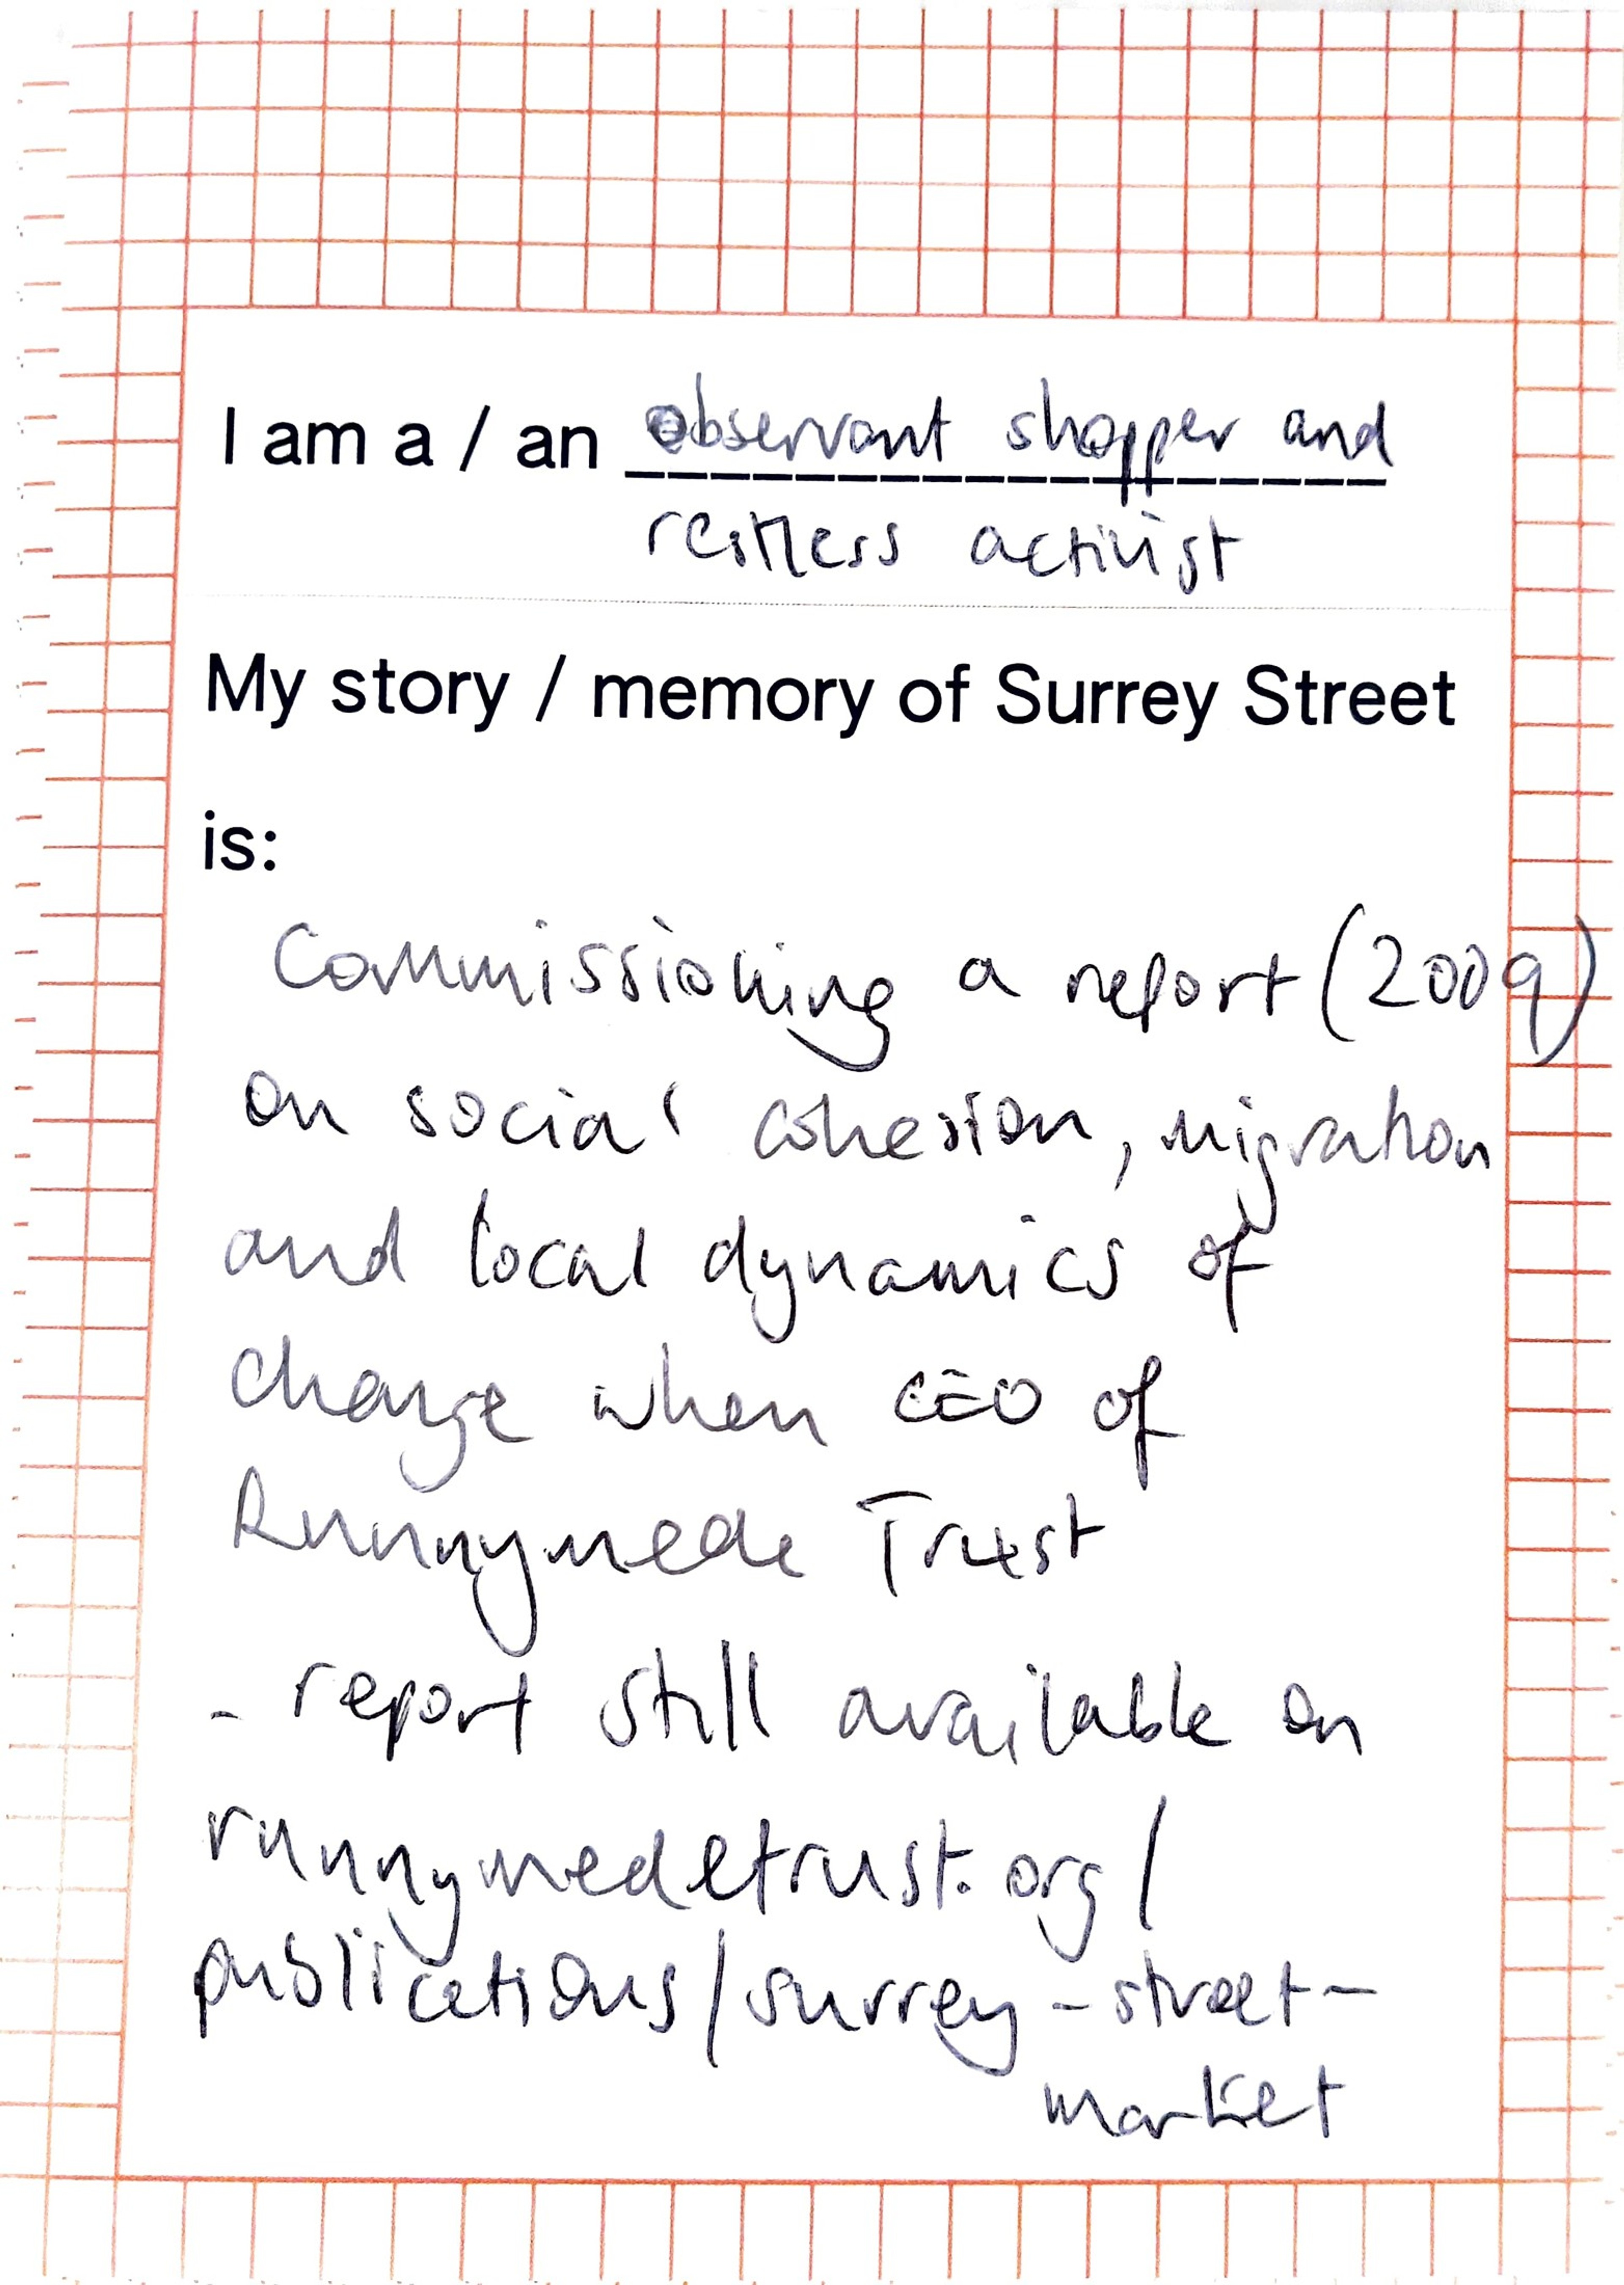 I am a / an observant shopper and
restless activist
My story / memory of Surrey Street
is:
Commissioning a report (2009)
on social cohesion, migration
and local dynamics of
change when CEO of
Runnymede Trust
- report still available on
runnymedetrust.org/
publications/surrey-street-
market